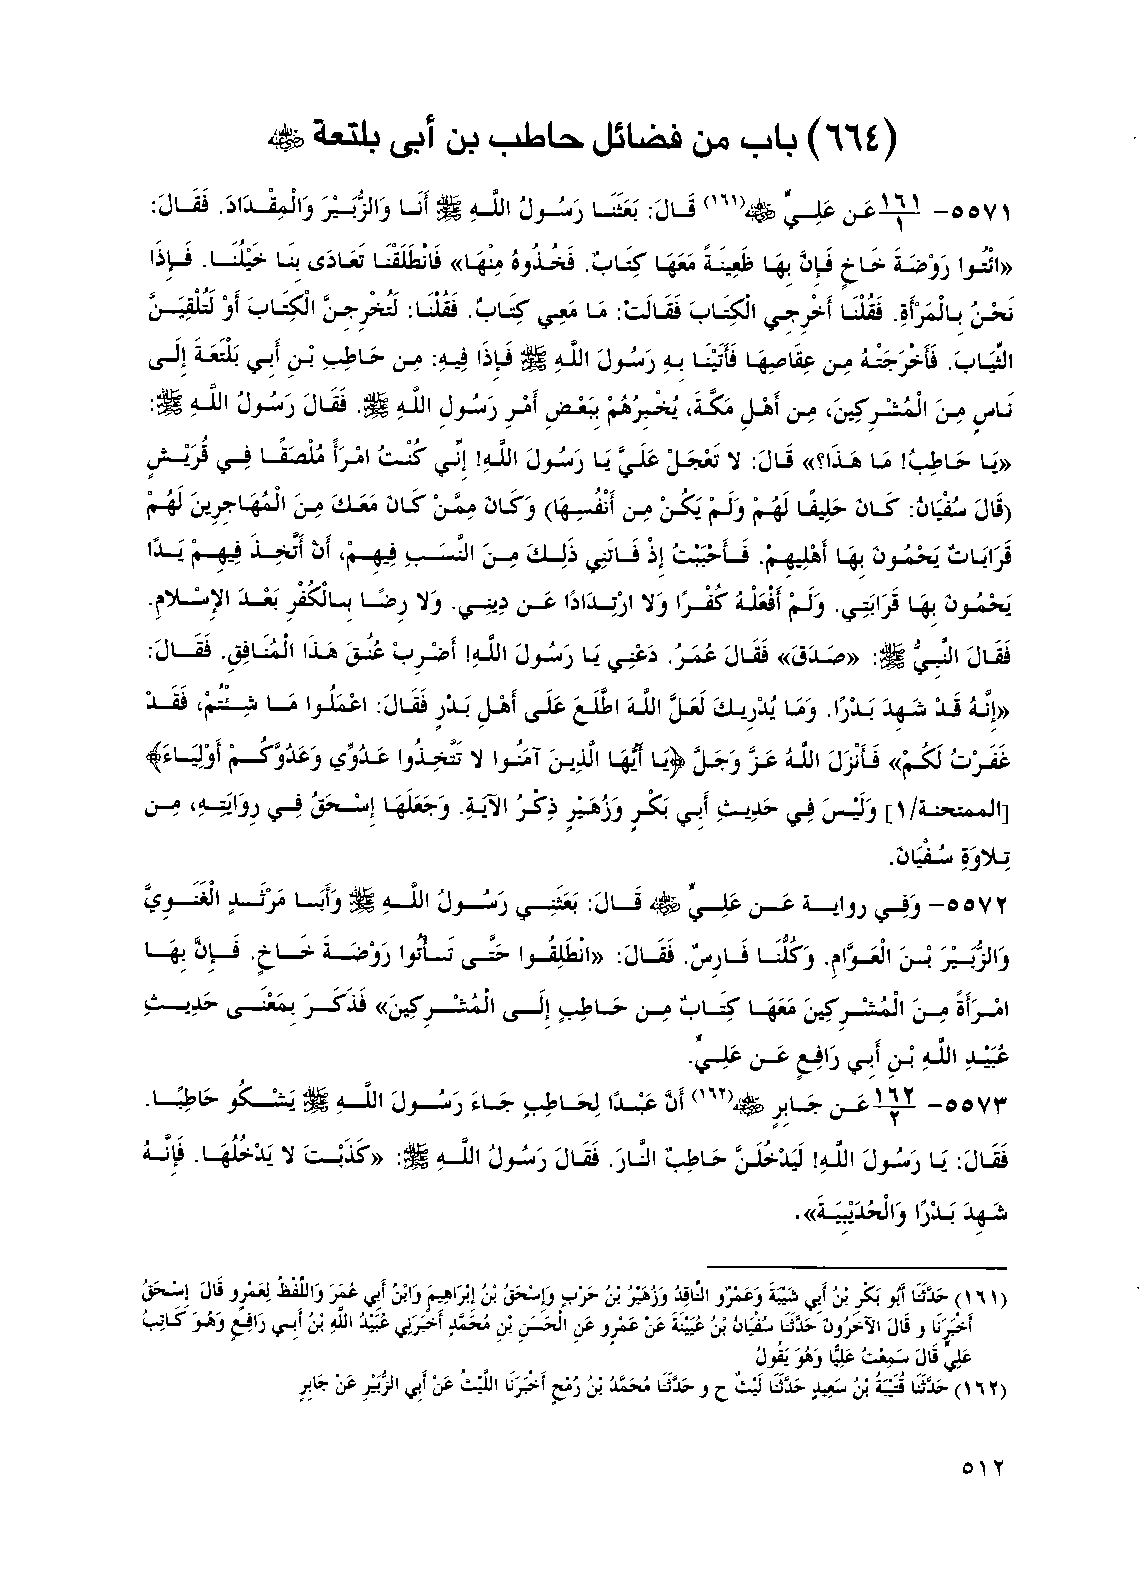 (٦٦٤) باب من فضائل حاطب بن أبى بلتعة ﷺ
٥٥٧١- ١٦١/١ عَن عَلِيٍّ ﷺ(١٦١) قَالَ: بَعَثَنَا رَسُولُ اللَّهِ ﷺ أَنَا وَالزُّبَيْرَ وَالْمِقْدَادَ. فَقَالَ:
«ائْتُوا رَوْضَةَ خَاخٍ فَإِنَّ بِهَا ظَعِينَةً مَعَهَا كِتَابٌ. فَخُذُوهُ مِنْهَا» فَانْطَلَقْنَا تَعَادَى بِنَا خَيْلُنَا. فَإِذَا
نَحْنُ بِالْمَرْأَةِ. فَقُلْنَا أَخْرِجِي الْكِتَابَ فَقَالَتْ: مَا مَعِي كِتَابٌ. فَقُلْنَا: لَتُخْرِجِنَّ الْكِتَابَ أَوْ لَتُلْقِيَنَّ
الثِّيَابَ. فَأَخْرَجَتْهُ مِن عِقَاصِهَا فَأَتَيْنَا بِهِ رَسُولَ اللَّهِ ﷺ فَإِذَا فِيهِ: مِن حَاطِبِ بْنِ أَبِي بَلْتَعَةَ إِلَى
نَاسٍ مِنَ الْمُشْرِكِينَ، مِن أَهْلِ مَكَّةَ، يُخْبِرُهُمْ بِبَعْضِ أَمْرِ رَسُولِ اللَّهِ ﷺ. فَقَالَ رَسُولُ اللَّهِ ﷺ:
«يَا حَاطِبُ! مَا هَذَا؟» قَالَ: لا تَعْجَلْ عَلَيَّ يَا رَسُولَ اللَّهِ! إِنِّي كُنْتُ امْرَأً مُلْصَقًا فِي قُرَيْشٍ
(قَالَ سُفْيَانُ: كَانَ حَلِيفًا لَهُمْ وَلَمْ يَكُنْ مِن أَنْفُسِهَا) وَكَانَ مِمَّنْ كَانَ مَعَكَ مِنَ الْمُهَاجِرِينَ لَهُمْ
قَرَابَاتٌ يَحْمُونَ بِهَا أَهْلِيهِمْ. فَأَحْبَبْتُ إِذْ فَاتَنِي ذَلِكَ مِنَ النَّسَبِ فِيهِمْ، أَنْ أَتَّخِذَ فِيهِمْ يَدًا
يَحْمُونَ بِهَا قَرَابَتِي. وَلَمْ أَفْعَلْهُ كُفْرًا وَلا ارْتِدَادًا عَن دِينِي. وَلا رِضًا بِالْكُفْرِ بَعْدَ الإِسْلامِ.
فَقَالَ النَّبِيُّ ﷺ: «صَدَقَ» فَقَالَ عُمَرُ. دَعْنِي يَا رَسُولَ اللَّهِ! أَضْرِبْ عُنُقَ هَذَا الْمُنَافِقِ. فَقَالَ:
«إِنَّهُ قَدْ شَهِدَ بَدْرًا. وَمَا يُدْرِيكَ لَعَلَّ اللَّهَ اطَّلَعَ عَلَى أَهْلِ بَدْرٍ فَقَالَ: اعْمَلُوا مَا شِئْتُمْ، فَقَدْ
غَفَرْتُ لَكُمْ» فَأَنْزَلَ اللَّهُ عَزَّ وَجَلَّ ﴿يَا أَيُّهَا الَّذِينَ آمَنُوا لا تَتَّخِذُوا عَدُوِّي وَعَدُوَّكُمْ أَوْلِيَاءَ﴾
[الممتحنة/١] وَلَيْسَ فِي حَدِيثِ أَبِي بَكْرٍ وَزُهَيْرٍ ذِكْرُ الآيَةِ. وَجَعَلَهَا إِسْحَقُ فِي رِوَايَتِهِ، مِن
تِلاوَةِ سُفْيَانَ.
٥٥٧٢- وَفِي رواية عَن عَلِيٍّ ﷺ قَالَ: بَعَثَنِي رَسُولُ اللَّهِ ﷺ وَأَبَا مَرْثَدٍ الْغَنَوِيَّ
وَالزُّبَيْرَ بْنَ الْعَوَّامِ. وَكُلُّنَا فَارِسٌ. فَقَالَ: «انْطَلِقُوا حَتَّى تَأْتُوا رَوْضَةَ خَاخٍ. فَإِنَّ بِهَا
امْرَأَةً مِنَ الْمُشْرِكِينَ مَعَهَا كِتَابٌ مِن حَاطِبٍ إِلَى الْمُشْرِكِينَ» فَذَكَرَ بِمَعْنَى حَدِيثِ
عُبَيْدِ اللَّهِ بْنِ أَبِي رَافِعٍ عَن عَلِيٍّ.
٥٥٧٣- ١٦٢/٢ عَن جَابِرٍ ﷺ(١٦٢) أَنَّ عَبْدًا لِحَاطِبٍ جَاءَ رَسُولَ اللَّهِ ﷺ يَشْكُو حَاطِبًا.
فَقَالَ: يَا رَسُولَ اللَّهِ! لَيَدْخُلَنَّ حَاطِبٌ النَّارَ. فَقَالَ رَسُولُ اللَّهِ ﷺ: «كَذَبْتَ لا يَدْخُلُهَا. فَإِنَّهُ
شَهِدَ بَدْرًا وَالْحُدَيْبِيَةَ».
(١٦١) حَدَّثَنَا أَبُو بَكْرِ بْنُ أَبِي شَيْبَةَ وَعَمْرٌو النَّاقِدُ وَزُهَيْرُ بْنُ حَرْبٍ وَإِسْحَقُ بْنُ إِبْرَاهِيمَ وَابْنُ أَبِي عُمَرَ وَاللَّفْظُ لِعَمْرٍو قَالَ إِسْحَقُ
أَخْبَرَنَا و قَالَ الآخَرُونَ حَدَّثَنَا سُفْيَانُ بْنُ عُيَيْنَةَ عَنْ عَمْرٍو عَنِ الْحَسَنِ بْنِ مُحَمَّدٍ أَخْبَرَنِي عُبَيْدُ اللَّهِ بْنُ أَبِي رَافِعٍ وَهُوَ كَاتِبُ
عَلِيٍّ قَالَ سَمِعْتُ عَلِيًّا وَهُوَ يَقُولُ
(١٦٢) حَدَّثَنَا قُتَيْبَةُ بْنُ سَعِيدٍ حَدَّثَنَا لَيْثٌ ح و حَدَّثَنَا مُحَمَّدُ بْنُ رُمْحٍ أَخْبَرَنَا اللَّيْثُ عَنْ أَبِي الزُّبَيْرِ عَنْ جَابِرٍ
٥١٢